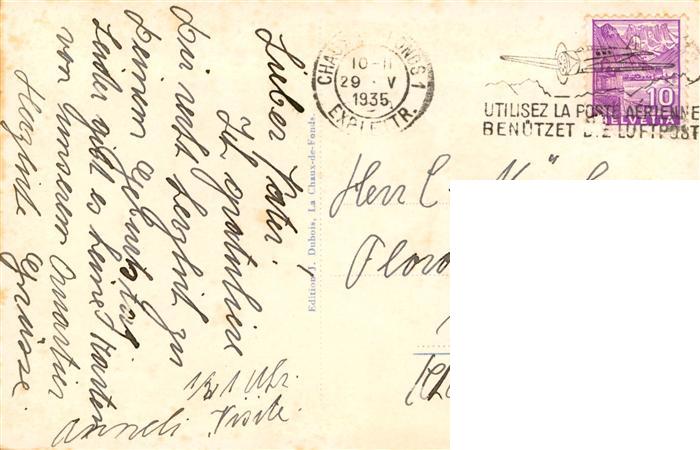 Lieber Vater!
Ich gratuliere
Dir recht herzlich zu
Deinem Geburtstag
Leider gibt es keine Karten
von unserem Quartier
Herzliche Grüsse.
Anneli
1/2 1 Uhr.
Visite.
Edition J. Dubois, La Chaux-de-Fonds.
CHAUX-DE-FONDS 1
10-11
29 · V
1935
EXP. LETTR.
UTILISEZ LA POSTE AÉRIENNE
BENÜTZET DIE LUFTPOST
10
HELVETIA
Herr